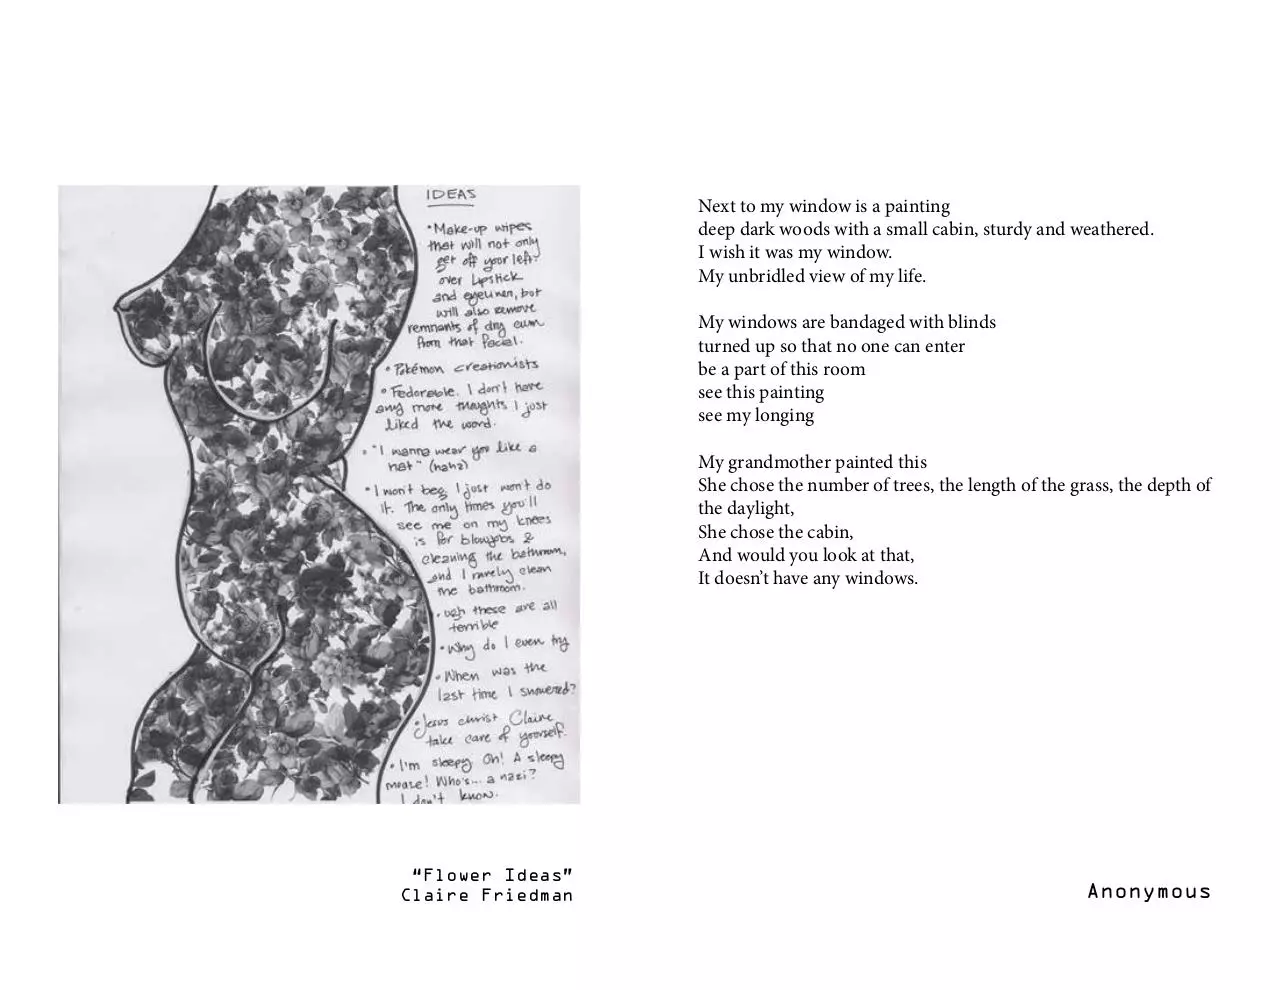 IDEAS
•Make-up wipes
that will not only
get off your left-
over lipstick
and eyeliner, but
will also remove
remnants of dry cum
from that facial.
• Pokémon creationists
• Fedorable. I don't have
any more thoughts I just
liked the word.
• "I wanna wear you like a
hat" (haha)
• I won't beg I just won't do
it. The only times you'll
see me on my knees
is for blowjobs &
cleaning the bathroom,
and I rarely clean
the bathroom.
• ugh these are all
terrible
• Why do I even try
• When was the
last time I showered?
• Jesus christ Claire
take care of yourself.
• I'm sleepy. Oh! A sleepy
mouse! Who's... a nazi?
I don't know.
"Flower Ideas"
Claire Friedman
Next to my window is a painting
deep dark woods with a small cabin, sturdy and weathered.
I wish it was my window.
My unbridled view of my life.
My windows are bandaged with blinds
turned up so that no one can enter
be a part of this room
see this painting
see my longing
My grandmother painted this
She chose the number of trees, the length of the grass, the depth of
the daylight,
She chose the cabin,
And would you look at that,
It doesn't have any windows.
Anonymous